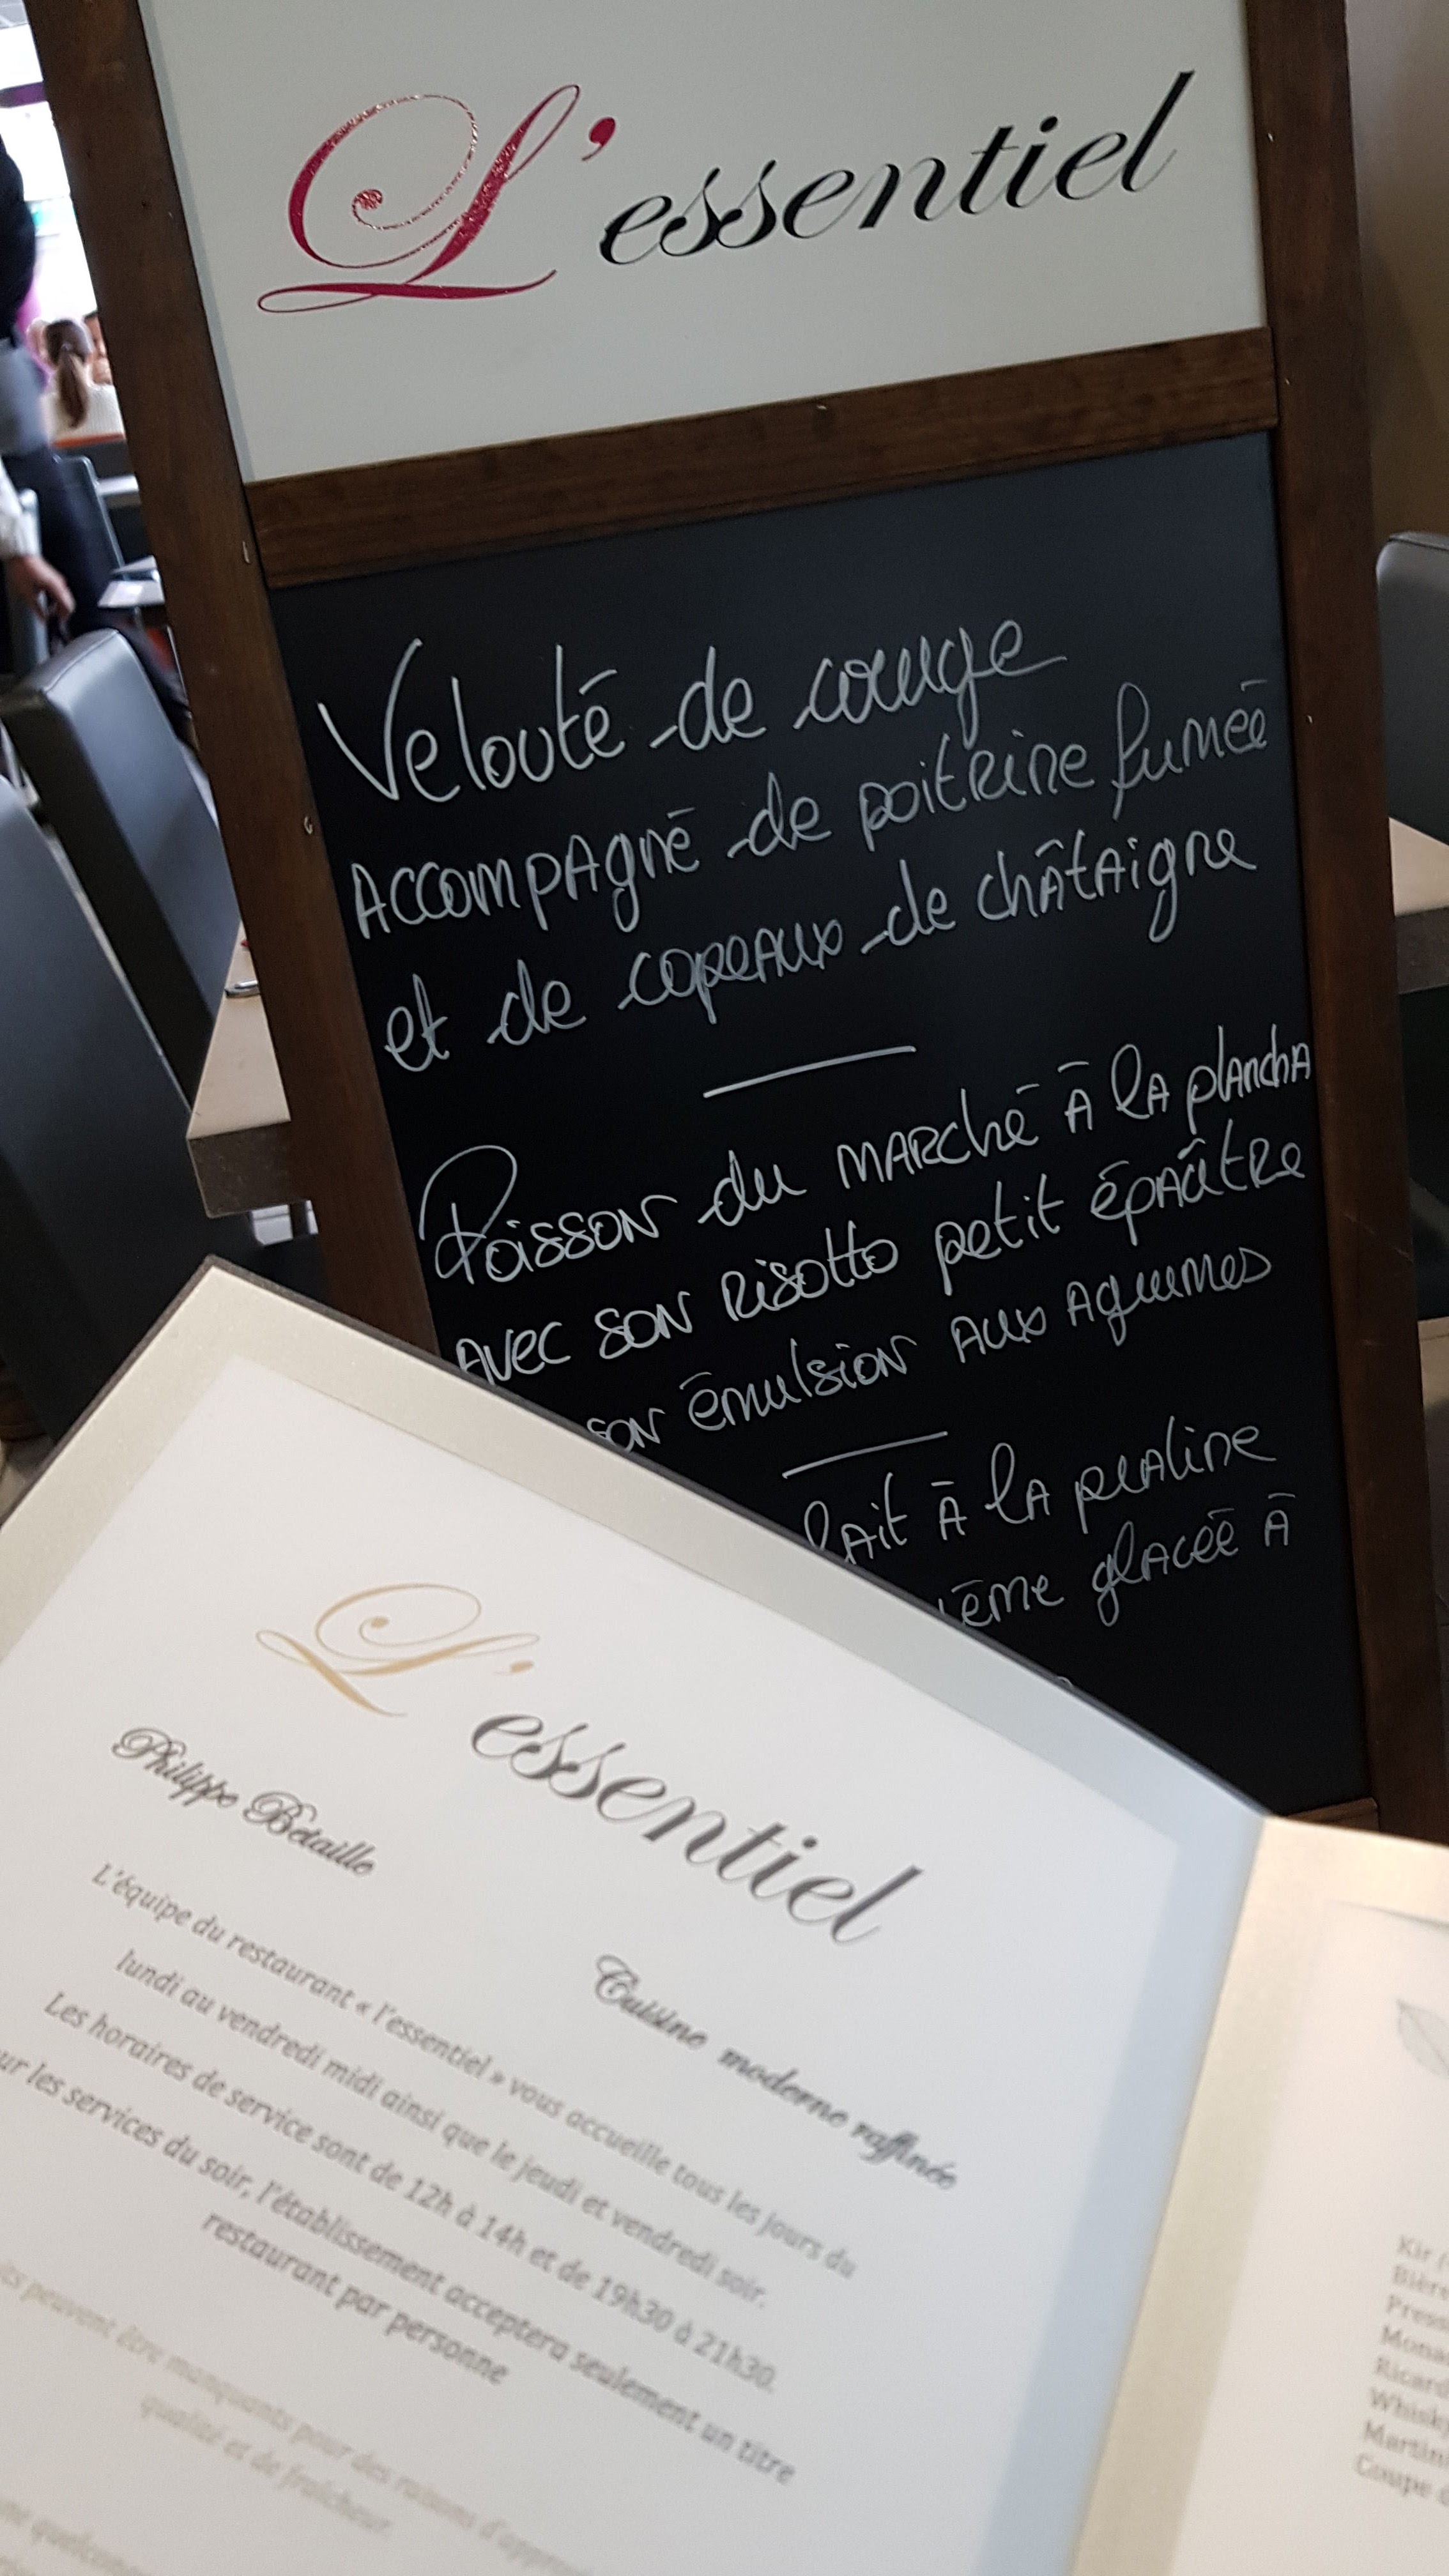 L'essentiel
Velouté de courge
Accompagné de poitrine fumée
et de copeaux de châtaigne
Poisson du marché à la plancha
avec son risotto petit épeautre
son émulsion aux agrumes
lait à la praline
glacée à
L'essentiel
Philippe Bétaille
Cuisine moderne raffinée
L'équipe du restaurant « l'essentiel » vous accueille tous les jours du
lundi au vendredi midi ainsi que le jeudi et vendredi soir.
Les horaires de service sont de 12h à 14h et de 19h30 à 21h30.
les services du soir, l'établissement acceptera seulement un titre
restaurant par personne
peuvent être manquants pour des raisons
qualité et de fraîcheur.
Kir
Ricard
Whisky
Coupe